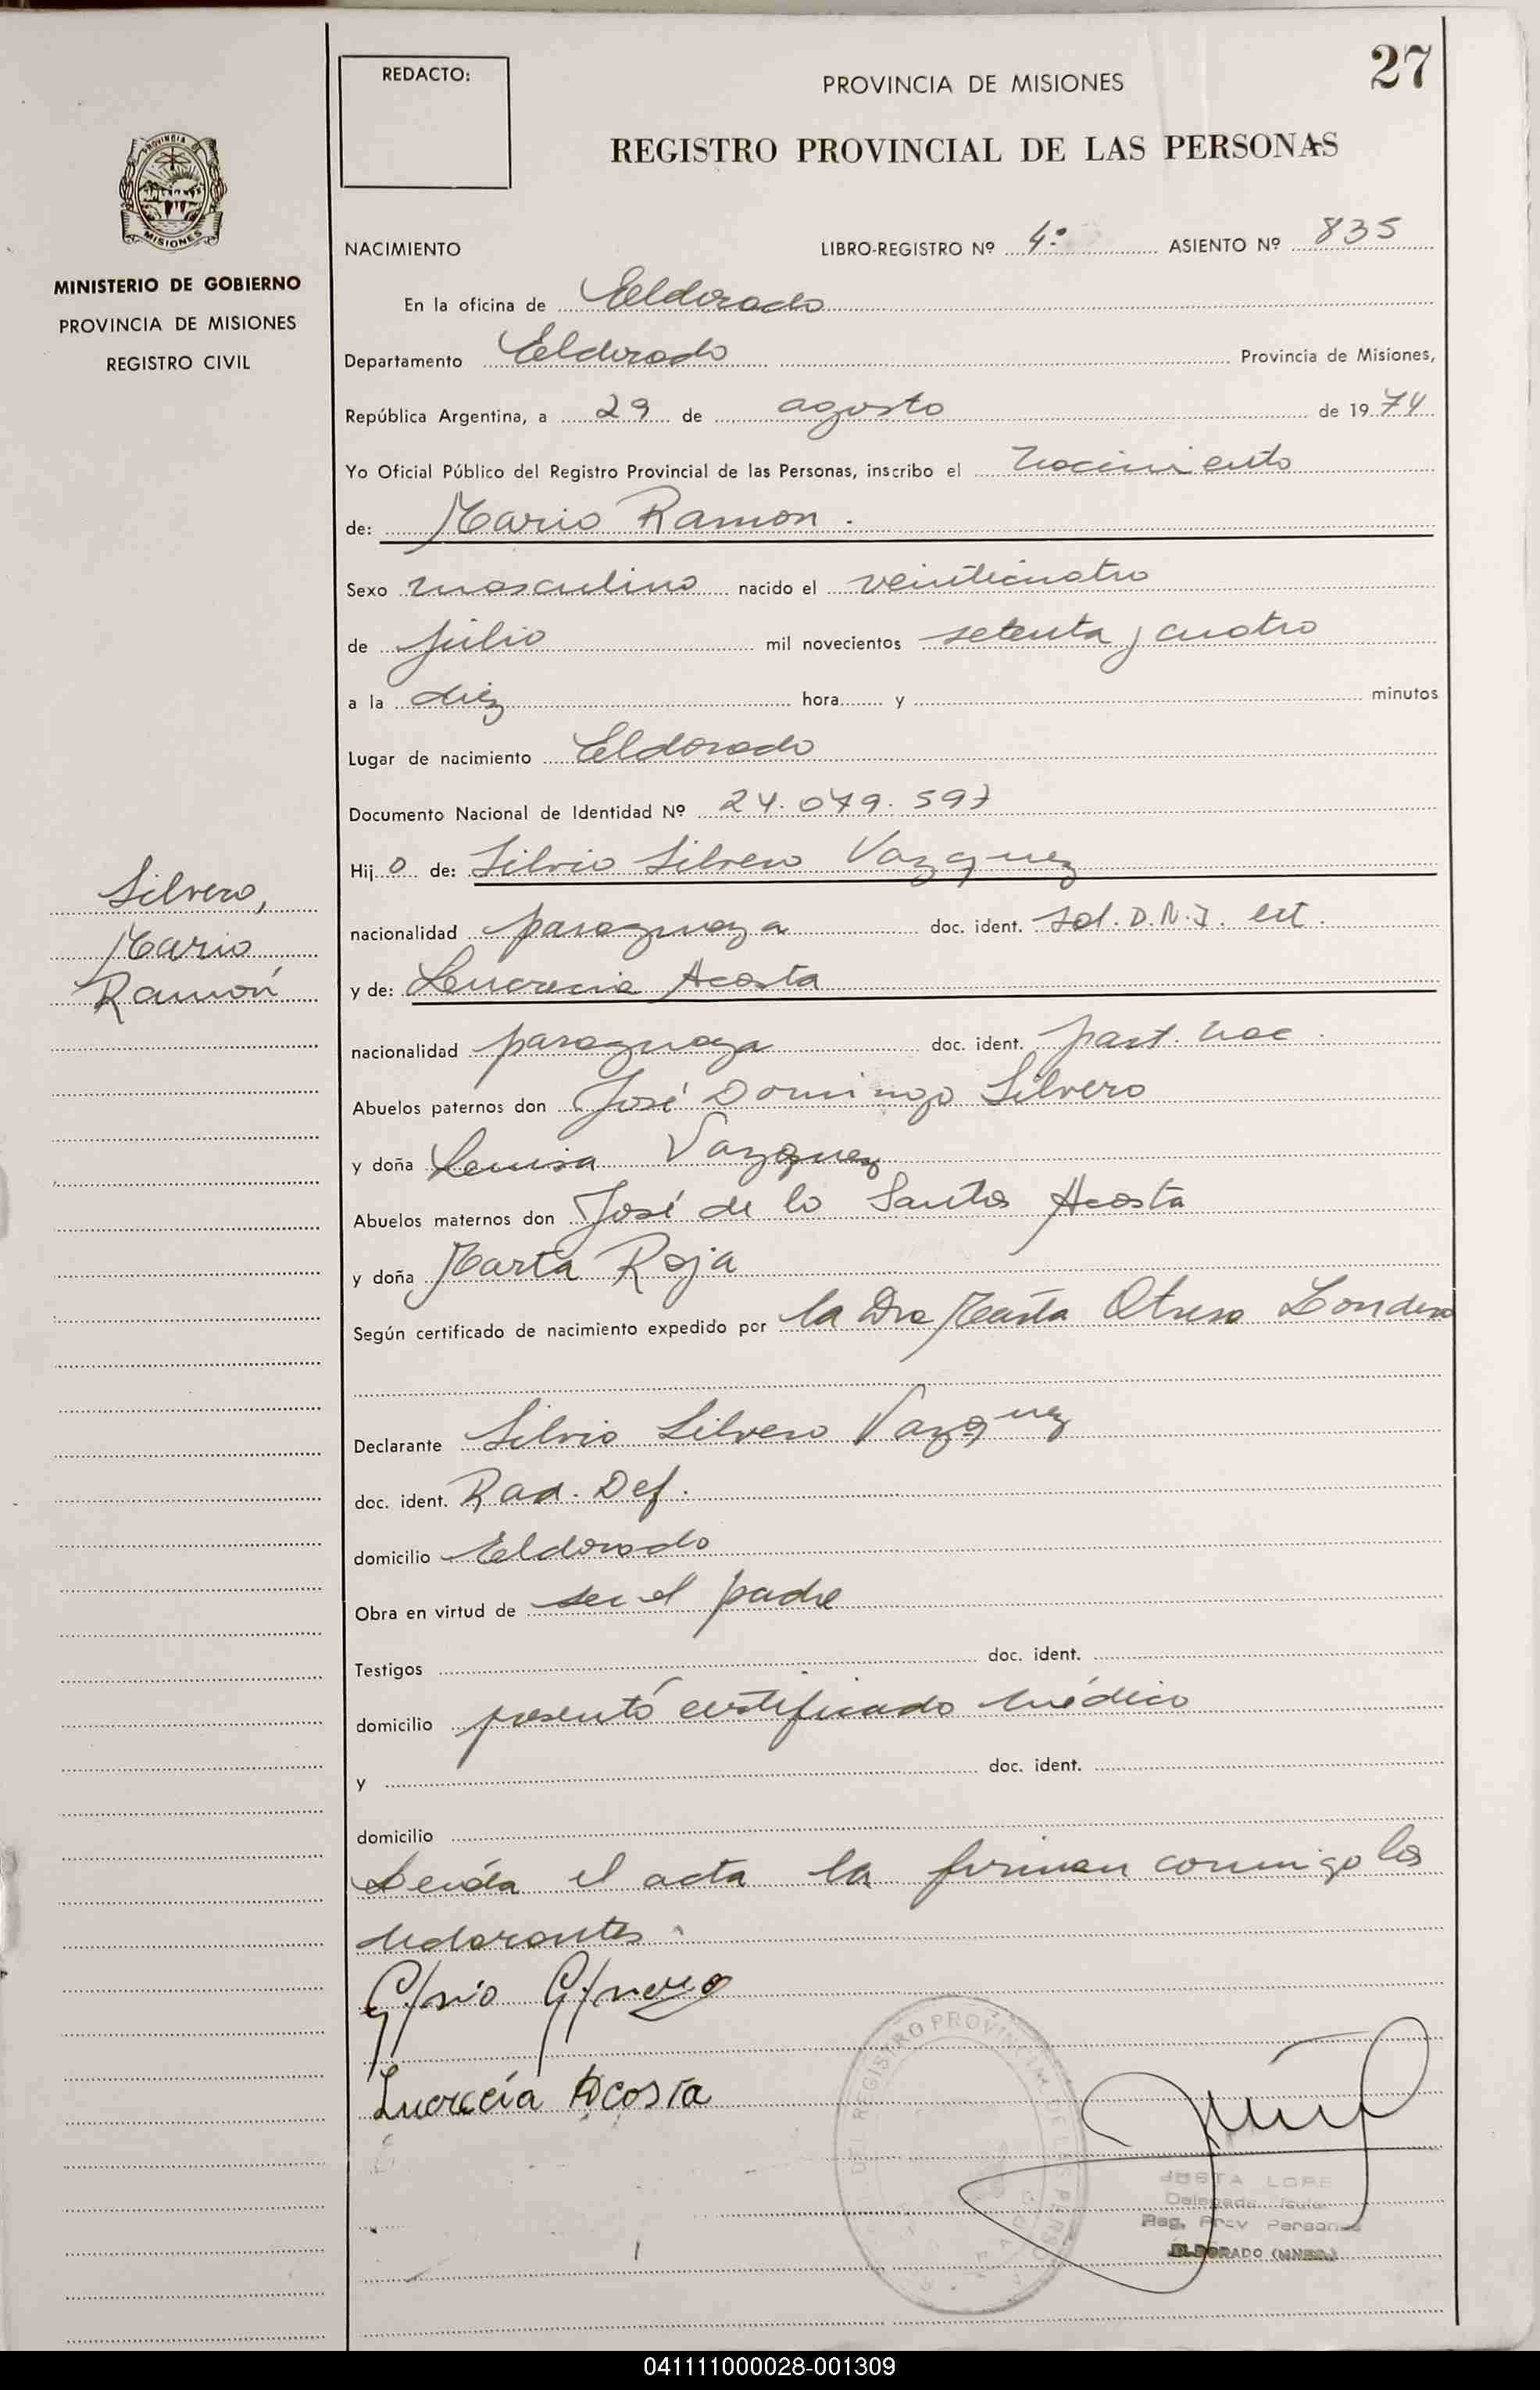 27
REDACTO:
PROVINCIA DE MISIONES
REGISTRO PROVINCIAL DE LAS PERSONAS
PROVINCIA DE
MISIONES
MINISTERIO DE GOBIERNO
PROVINCIA DE MISIONES
REGISTRO CIVIL
NACIMIENTO LIBRO-REGISTRO Nº 4º ASIENTO Nº 835
En la oficina de Eldorado
Departamento Eldorado Provincia de Misiones,
República Argentina, a 29 de agosto de 1974
Yo Oficial Público del Registro Provincial de las Personas, inscribo el nacimiento
de: Mario Ramon.
Sexo masculino nacido el veinticuatro
de julio mil novecientos setenta y cuatro
a la diez hora y minutos
Lugar de nacimiento Eldorado
Documento Nacional de Identidad Nº 24.079.597
Hijo de: Silvio Silvero Vazquez
Silvero,
Mario
Ramón
nacionalidad paraguaya doc. ident. sol. D.N.I. ext.
y de: Lucrecia Acosta
nacionalidad paraguaya doc. ident. part. nac.
Abuelos paternos don José Domingo Silvero
y doña Luisa Vazquez
Abuelos maternos don José de lo Santos Acosta
y doña Marta Roja
Según certificado de nacimiento expedido por la Dra Marta Londero
Declarante Silvio Silvero Vazquez
doc. ident. Rad. Def.
domicilio Eldorado
Obra en virtud de ser el padre
Testigos doc. ident.
domicilio presentó certificado médico
y doc. ident.
domicilio
Leída el acta la firman conmigo los
declarantes.
Lucrecia Acosta
REGISTRO PROVINCIAL DE LAS PERSONAS
Reg. Prov Personas
ELDORADO (MNES.)
041111000028-001309